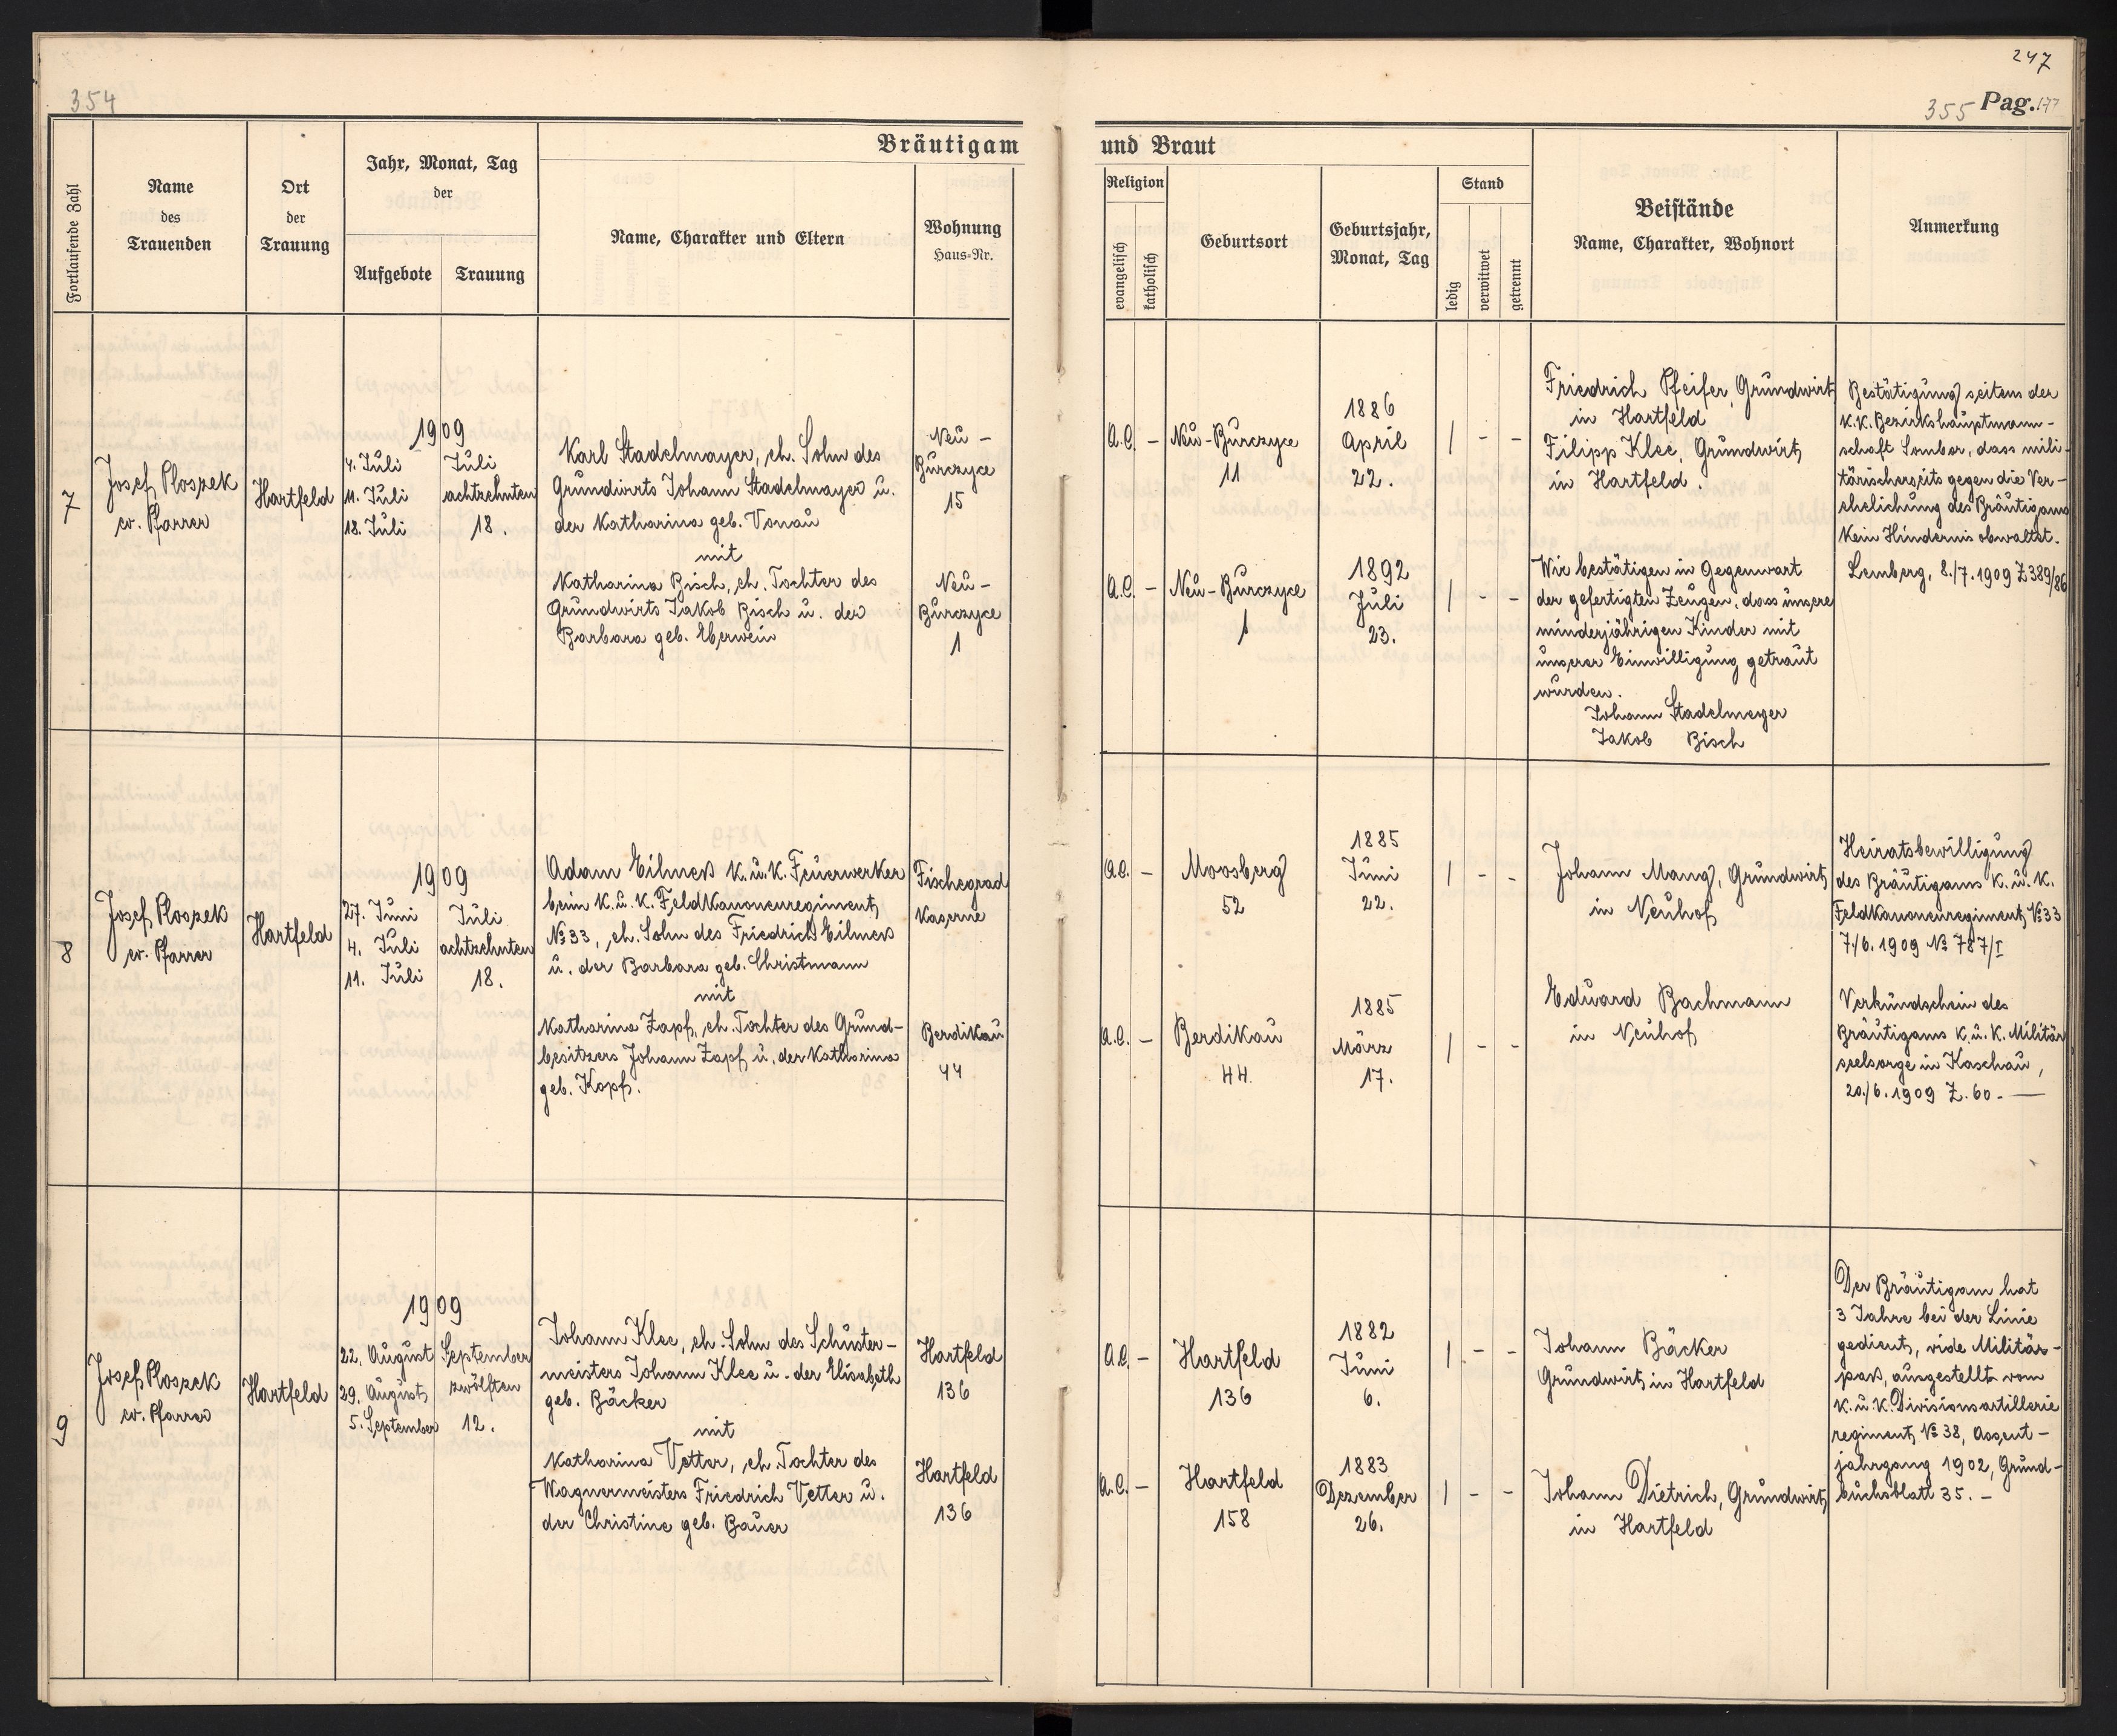 247
354
355 Pag. 177
Bräutigam und Braut
Fortlaufende Zahl
Name
des
Trauenden
Ort
der
Trauung
Jahr, Monat, Tag
der
Aufgebote
Trauung
Name, Charakter und Eltern
Wohnung
Haus-Nr.
Religion
evangelisch
katholisch
Geburtsort
Geburtsjahr,
Monat, Tag
Stand
ledig
verwitwet
getrennt
Beistände
Name, Charakter, Wohnort
Anmerkung
7
Josef Ploszek
ev. Pfarrer
Hartfeld
1909
4. Juli
11. Juli
18. Juli
Juli
achtzehnten
18.
Karl Stadelmayer, eh. Sohn des
Grundwirts Johann Stadelmayer u.
der Katharina geb. Vonau
mit
Katharina Bisch, eh. Tochter des
Grundwirts Jakob Bisch u. der
Barbara geb. Eberwein
Neu-
Burczyce
15
Neu-
Burczyce
1
A.C. -
Neu-Burczyce
11
1886
April
22.
1 - -
A.C. -
Neu-Burczyce
1
1892
Juli
23.
1 - -
Friedrich Pfeifer, Grundwirt
in Hartfeld
Filipp Klee, Grundwirt
in Hartfeld.
Wir bestätigen in Gegenwart
der gefertigten Zeugen, dass unsere
minderjährigen Kinder mit
unserer Einwilligung getraut
wurden.
Johann Stadelmeyer
Jakob Bisch
Bestätigung seitens der
K.K. Bezirkshauptmann-
schaft Sambor, dass mili-
tärischerseits gegen die Ver-
ehelichung des Bräutigams
kein Hindernis obwaltet.
Lemberg, 8./7. 1909 Z 389/86
8
Josef Ploszek
ev. Pfarrer
Hartfeld
1909
27. Juni
4. Juli
11. Juli
Juli
achtzehnten
18.
Adam Eilmes K.u.K. Feuerwerker
beim K.u.K. Feldkanonenregiment
№ 33, eh. Sohn des Friedrich Eilmes
u. der Barbara geb. Christmann
mit
Katharina Zapf, eh. Tochter des Grund-
besitzers Johann Zapf u. der Katharina
geb. Kopf.
Fischegrad
Kaserne
Berdikau
44
A.C. -
Moosberg
52
1885
Juni
22.
1 - -
A.C. -
Berdikau
44.
1885
März
17.
1 - -
Johann Mang, Grundwirt
in Neuhof
Eduard Bachmann
in Neuhof
Heiratsbewilligung
des Bräutigams K.u.K.
Feldkanonenregiment № 33
7./6. 1909 № 787/I
Verkündschein des
Bräutigams K.u.K. Militär
seelsorge in Kaschau,
20./6. 1909 Z. 60. -
9
Josef Ploszek
ev. Pfarrer
Hartfeld
1909
22. August
29. August
5. September
September
zwölften
12.
Johann Klee, eh. Sohn des Schuster-
meisters Johann Klee u. der Elisabeth
geb. Bäcker
mit
Katharina Vetter, eh. Tochter des
Wagnermeisters Friedrich Vetter u.
der Christine geb. Bauer
Hartfeld
136
Hartfeld
136
A.C. -
Hartfeld
136
1882
Juni
6.
1 - -
A.C. -
Hartfeld
158
1883
Dezember
26.
1 - -
Johann Bäcker
Grundwirt in Hartfeld
Johann Dietrich, Grundwirt
in Hartfeld
Der Bräutigam hat
3 Jahre bei der Linie
gedient, vide Militär-
pass, ausgestellt vom
K.u.K. Divisionsartillerie
regiment № 38, Assent-
jahrgang 1902, Grund-
buchsblatt 35. -